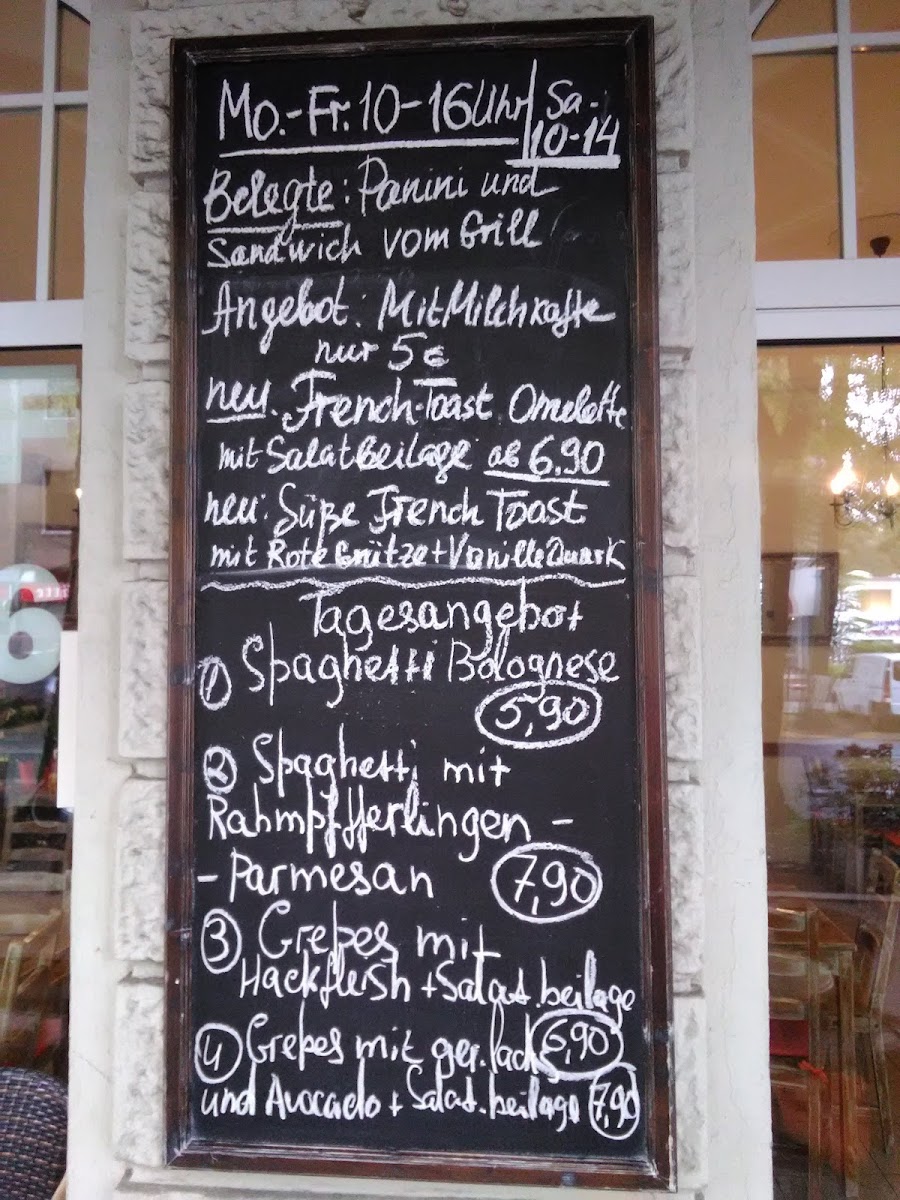 Mo.-Fr. 10-16 Uhr
Sa-
10-14
Belegte: Panini und
Sandwich vom Grill
Angebot: Mit Milchkaffe
nur 5€
neu. French-Toast Omelette
mit Salatbeilage ab 6.90
neu: Süße French Toast
mit Rote Grütze+Vanille Quark
Tagesangebot
1 Spaghetti Bolognese
5,90
2 Spaghetti mit
Rahmpfifferlingen -
-Parmesan 7,90
3 Crepes mit
Hackfleish +Salat beilage
6,90
4 Crepes mit ger. lachs
und Avocado + Salat.beilage 7,90